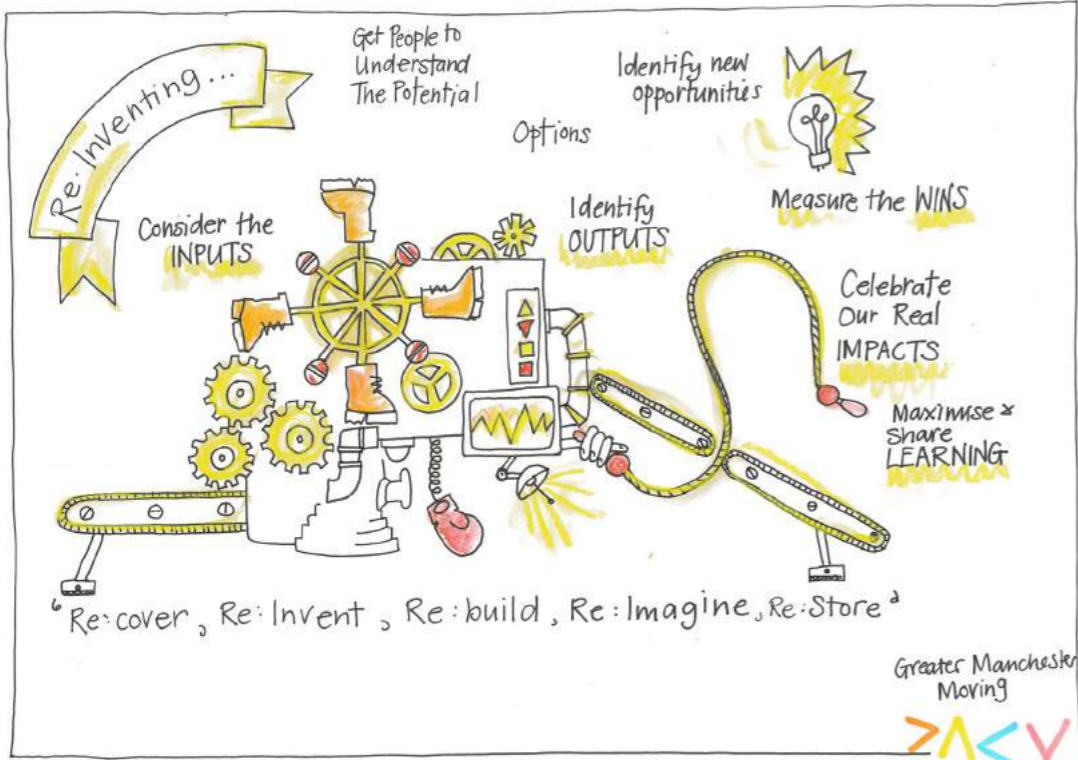 Re. Inventing...
Get People to
Understand
The Potential
Identify new
opportunities
Options
Measure the WINS
Consider the
INPUTS
Identify
OUTPUTS
Celebrate
Our Real
IMPACTS
Maximise &
Share
LEARNING
"Re:cover, Re:Invent, Re:build, Re:Imagine, Re:Store"
Greater Manchester
Moving